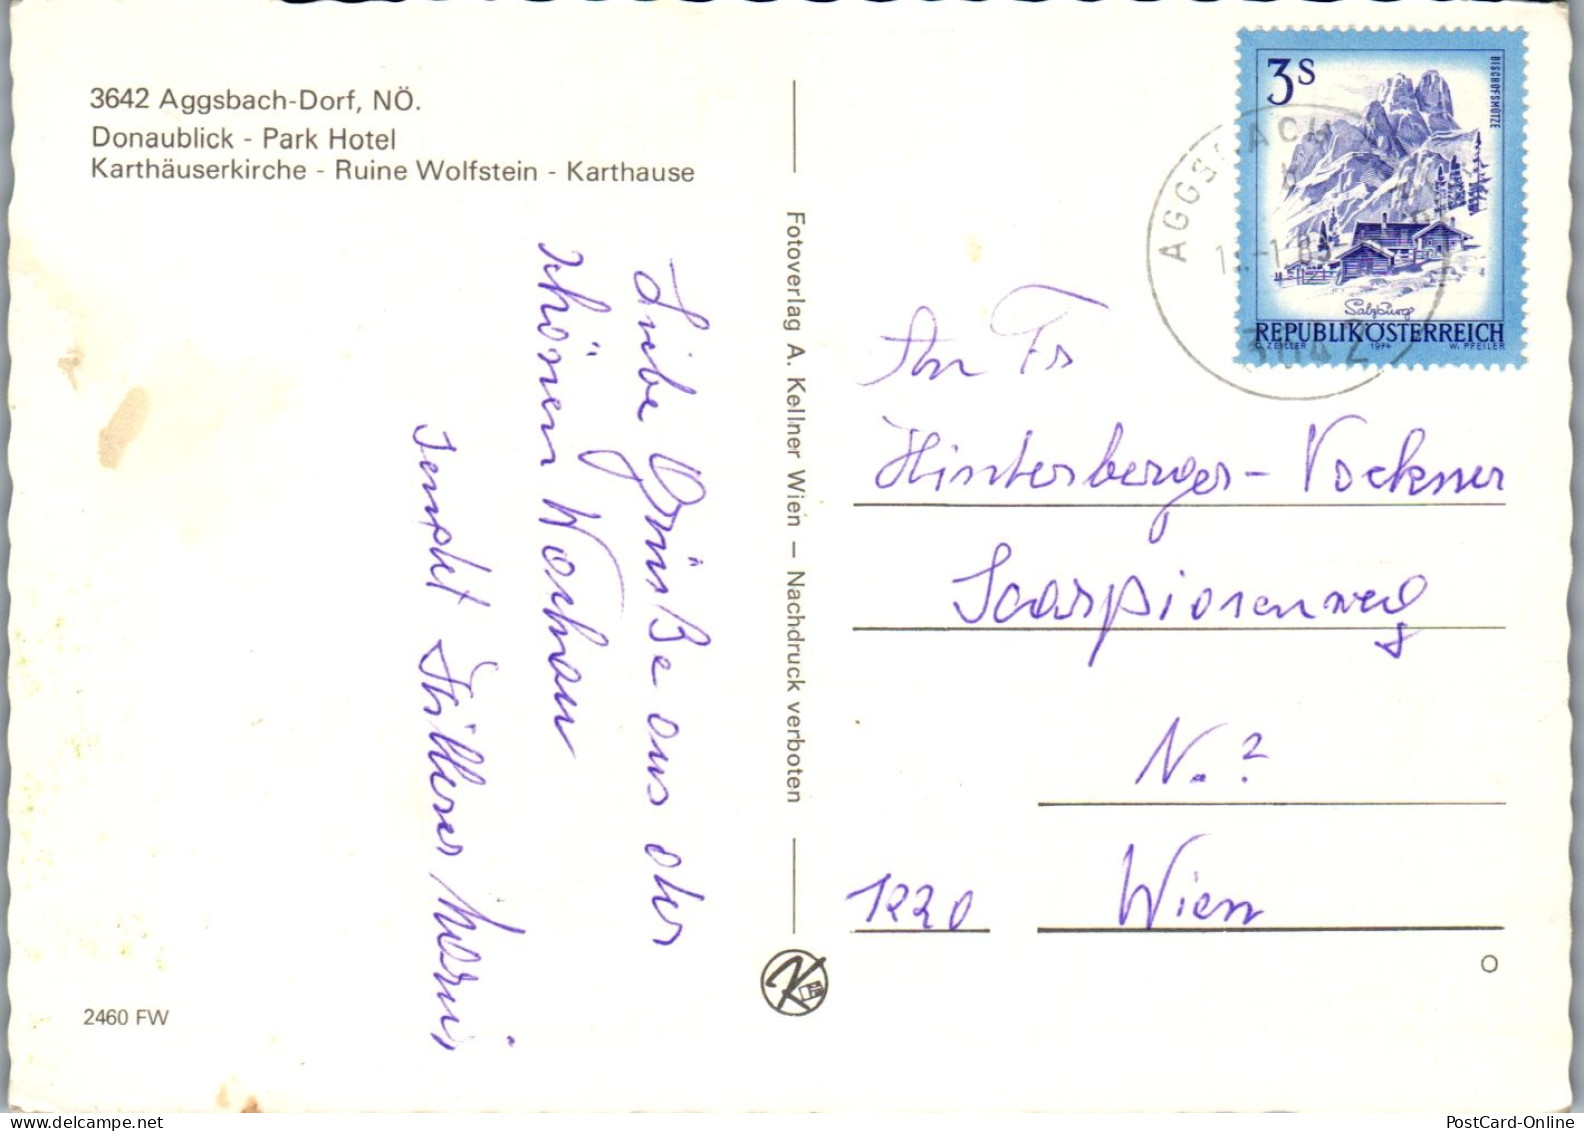 3642 Aggsbach-Dorf, NÖ.
Donaublick - Park Hotel
Karthäuserkirche - Ruine Wolfstein - Karthause
Liebe Grüße aus der
schönen Wachau
sendet
Fotoverlag A. Kellner Wien – Nachdruck verboten
2460 FW
3S
BISCHOFSMÜTZE
Salzburg
REPUBLIK ÖSTERREICH
O. ZEILLER 1974 W. PFEILER
AGGSBACH
3642
An Fr
Hinterberger-Vockner
Scorpionenweg
N.?
1220 Wien
PostCard-Online